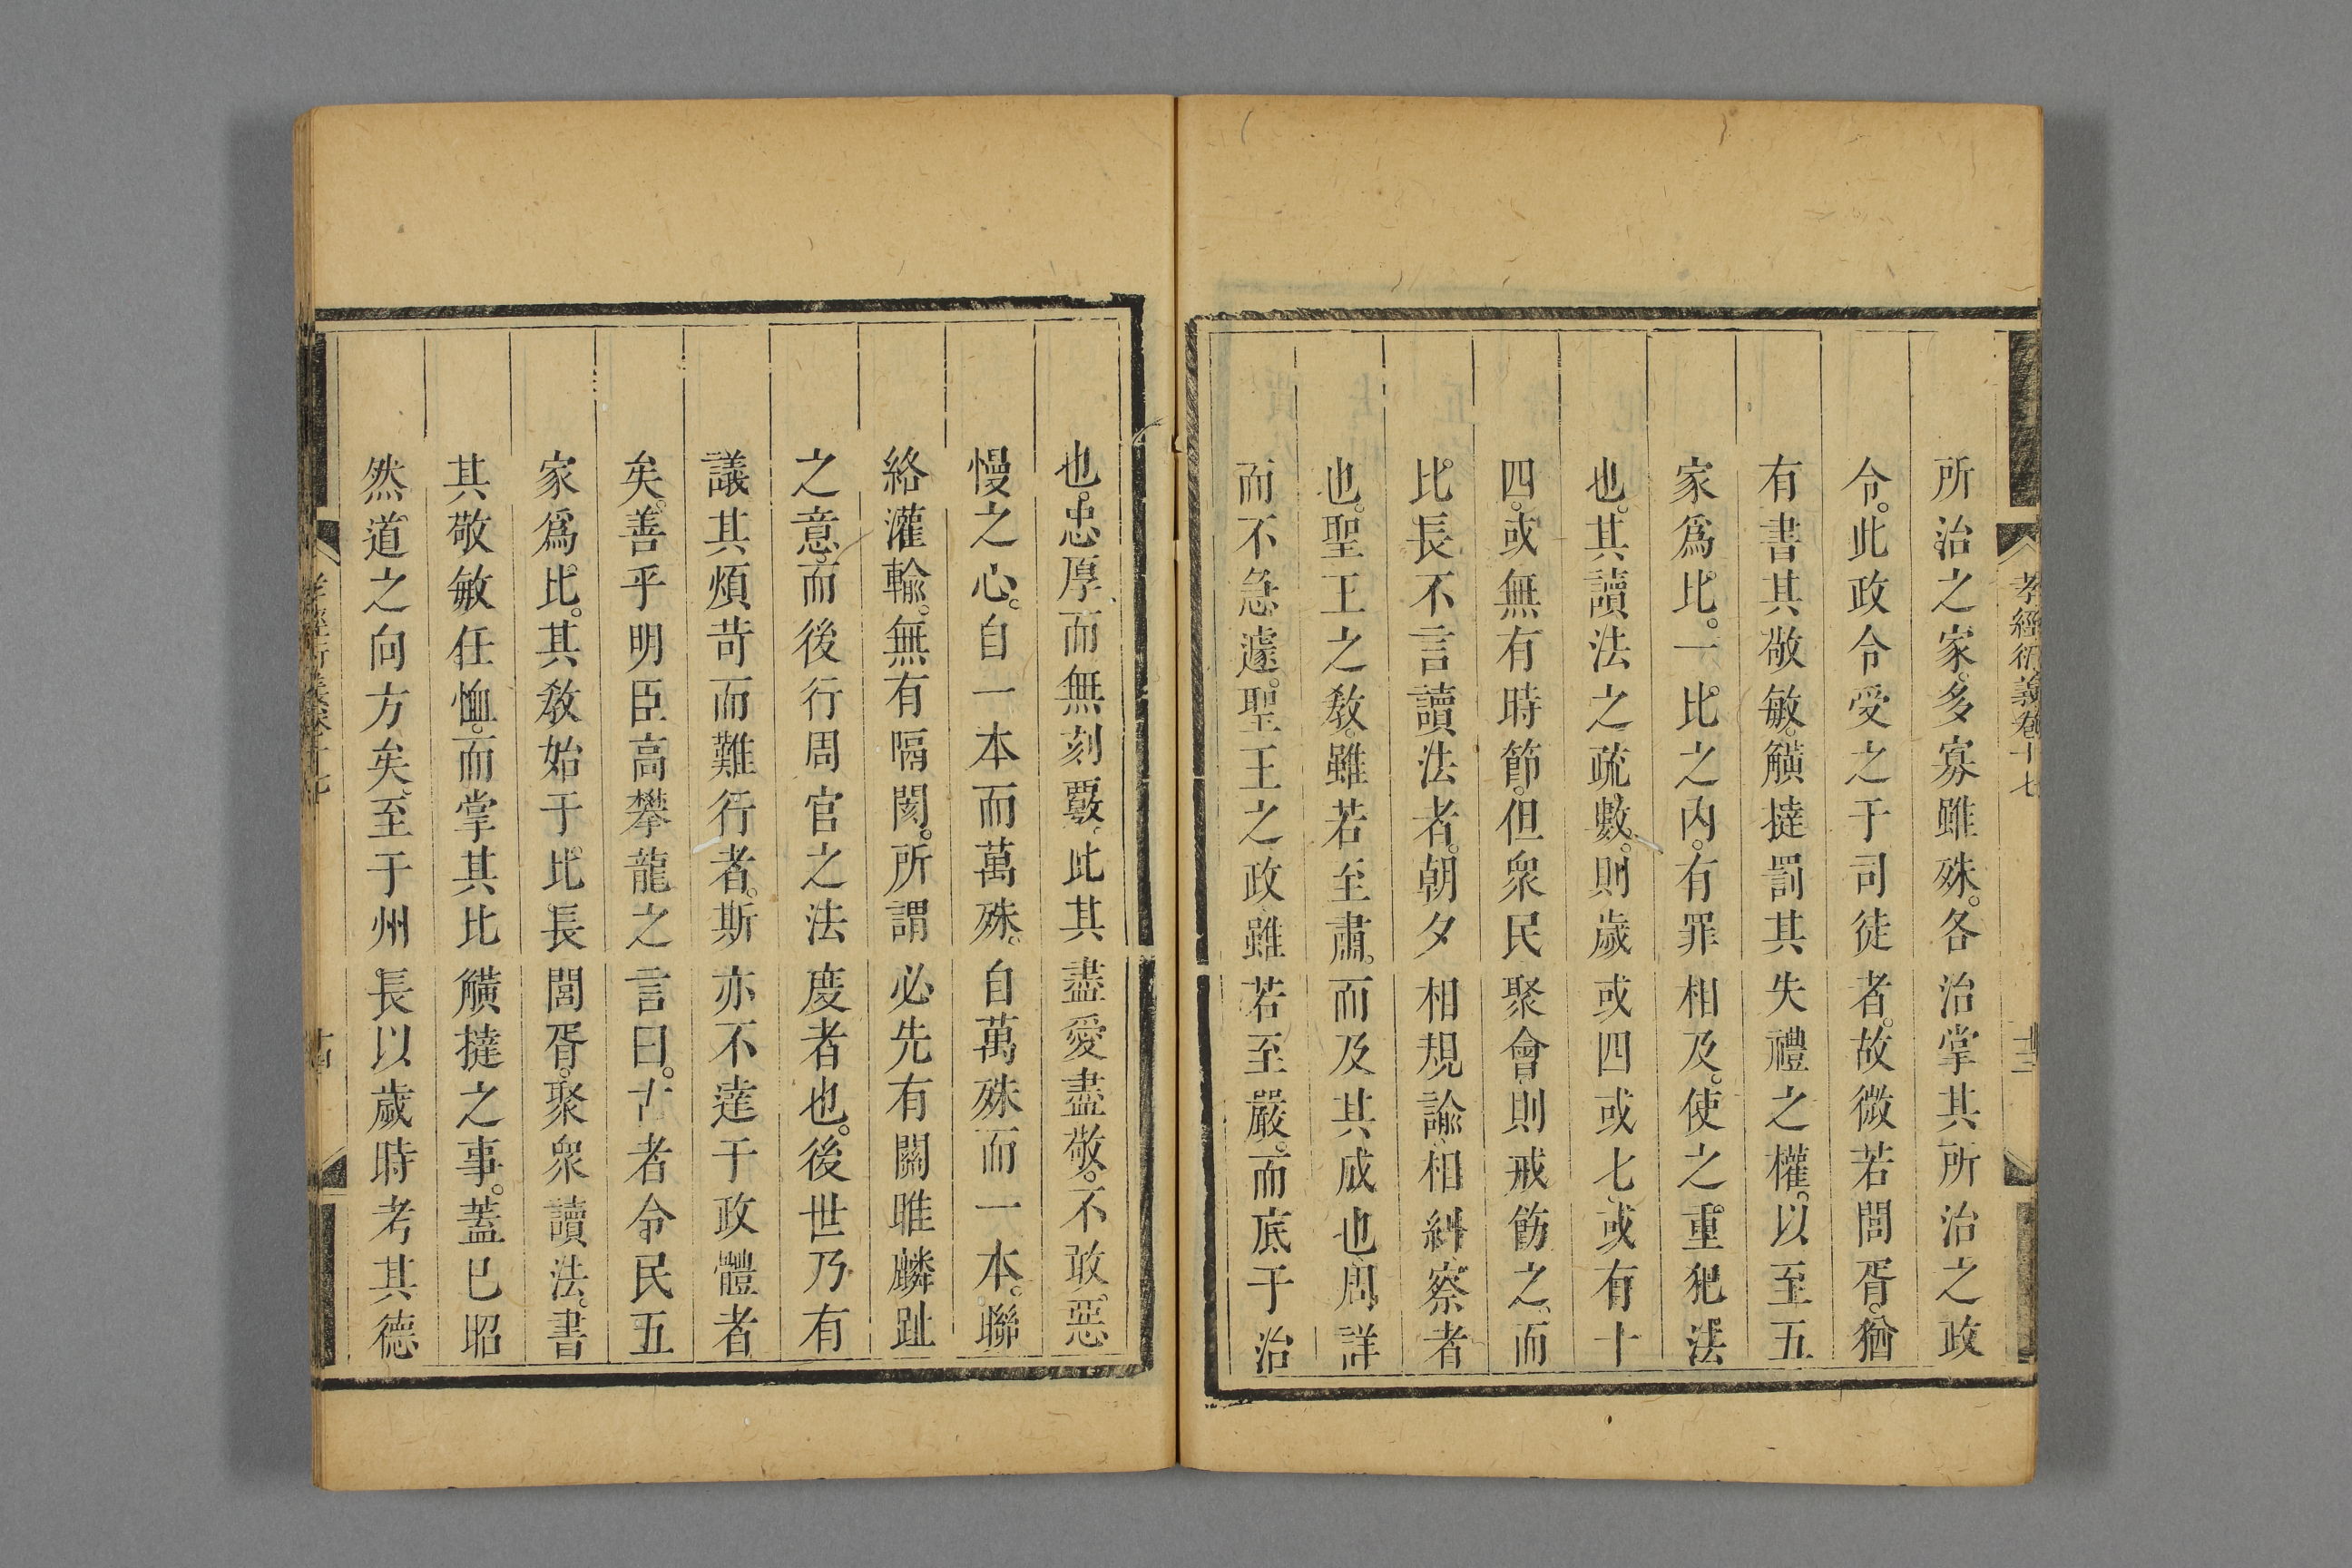 孝經衍義卷十七
十三
所治之家多寡雖殊。各治掌其所治之政
令。此政令受之于司徒者。故微若閭胥。猶
有書其敬敏。觵撻罰其失禮之權。以至五
家爲比。一比之內。有罪相及。使之重犯法
也。其讀法之疏數。則歲或四或七或有十
四。或無有時節。但衆民聚會則戒飭之。而
比長不言讀法者。朝夕相規諭相糾察者
也。聖王之教。雖若至肅。而及其成也。周詳
而不急遽。聖王之政雖若至嚴。而底于治
也。忠厚而無刻覈。此其盡愛盡敬。不敢惡
慢之心。自一本而萬殊。自萬殊而一本。聯
絡灌輸。無有隔閡。所謂必先有關雎麟趾
之意。而後行周官之法度者也。後世乃有
議其煩苛而難行者。斯亦不達于政體者
矣。善乎明臣高攀龍之言曰。古者令民五
家爲比。其教始于比長閭胥。聚衆讀法。書
其敬敏任恤。而掌其比觵撻之事。蓋已昭
然道之向方矣。至于州長以歲時考其德